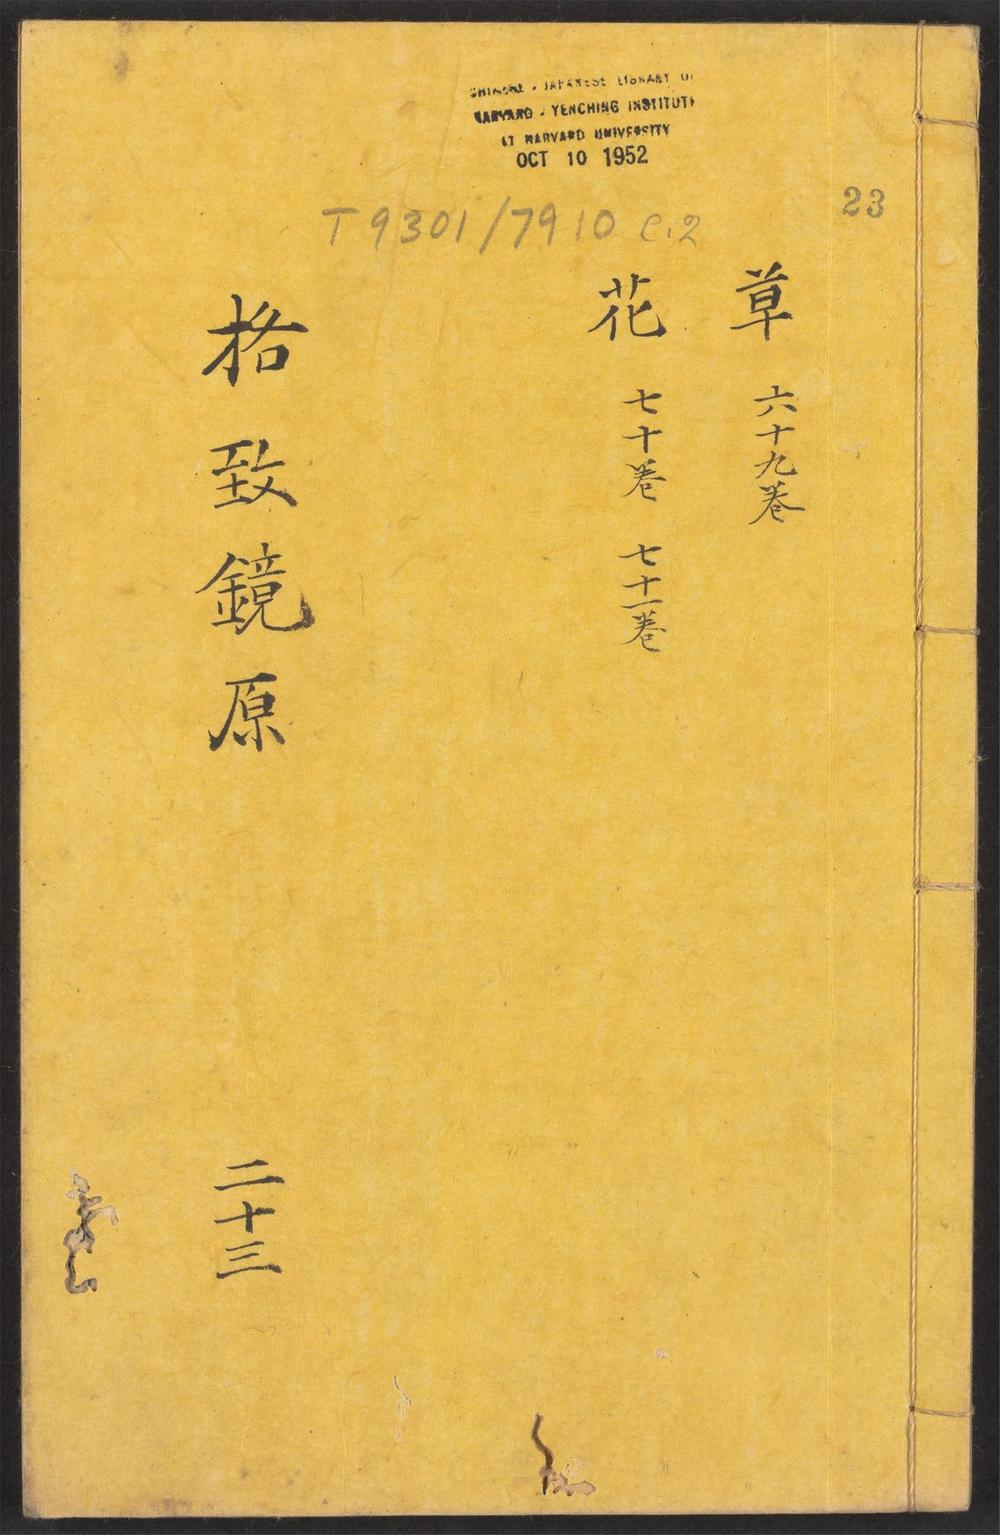 CHINESE - JAPANESE LIBRARY OF
HARVARD - YENCHING INSTITUTE
AT HARVARD UNIVERSITY
OCT 10 1952
23
T 9301/7910 C.2
草 六十九卷
花 七十卷 七十一卷
格致鏡原 二十三